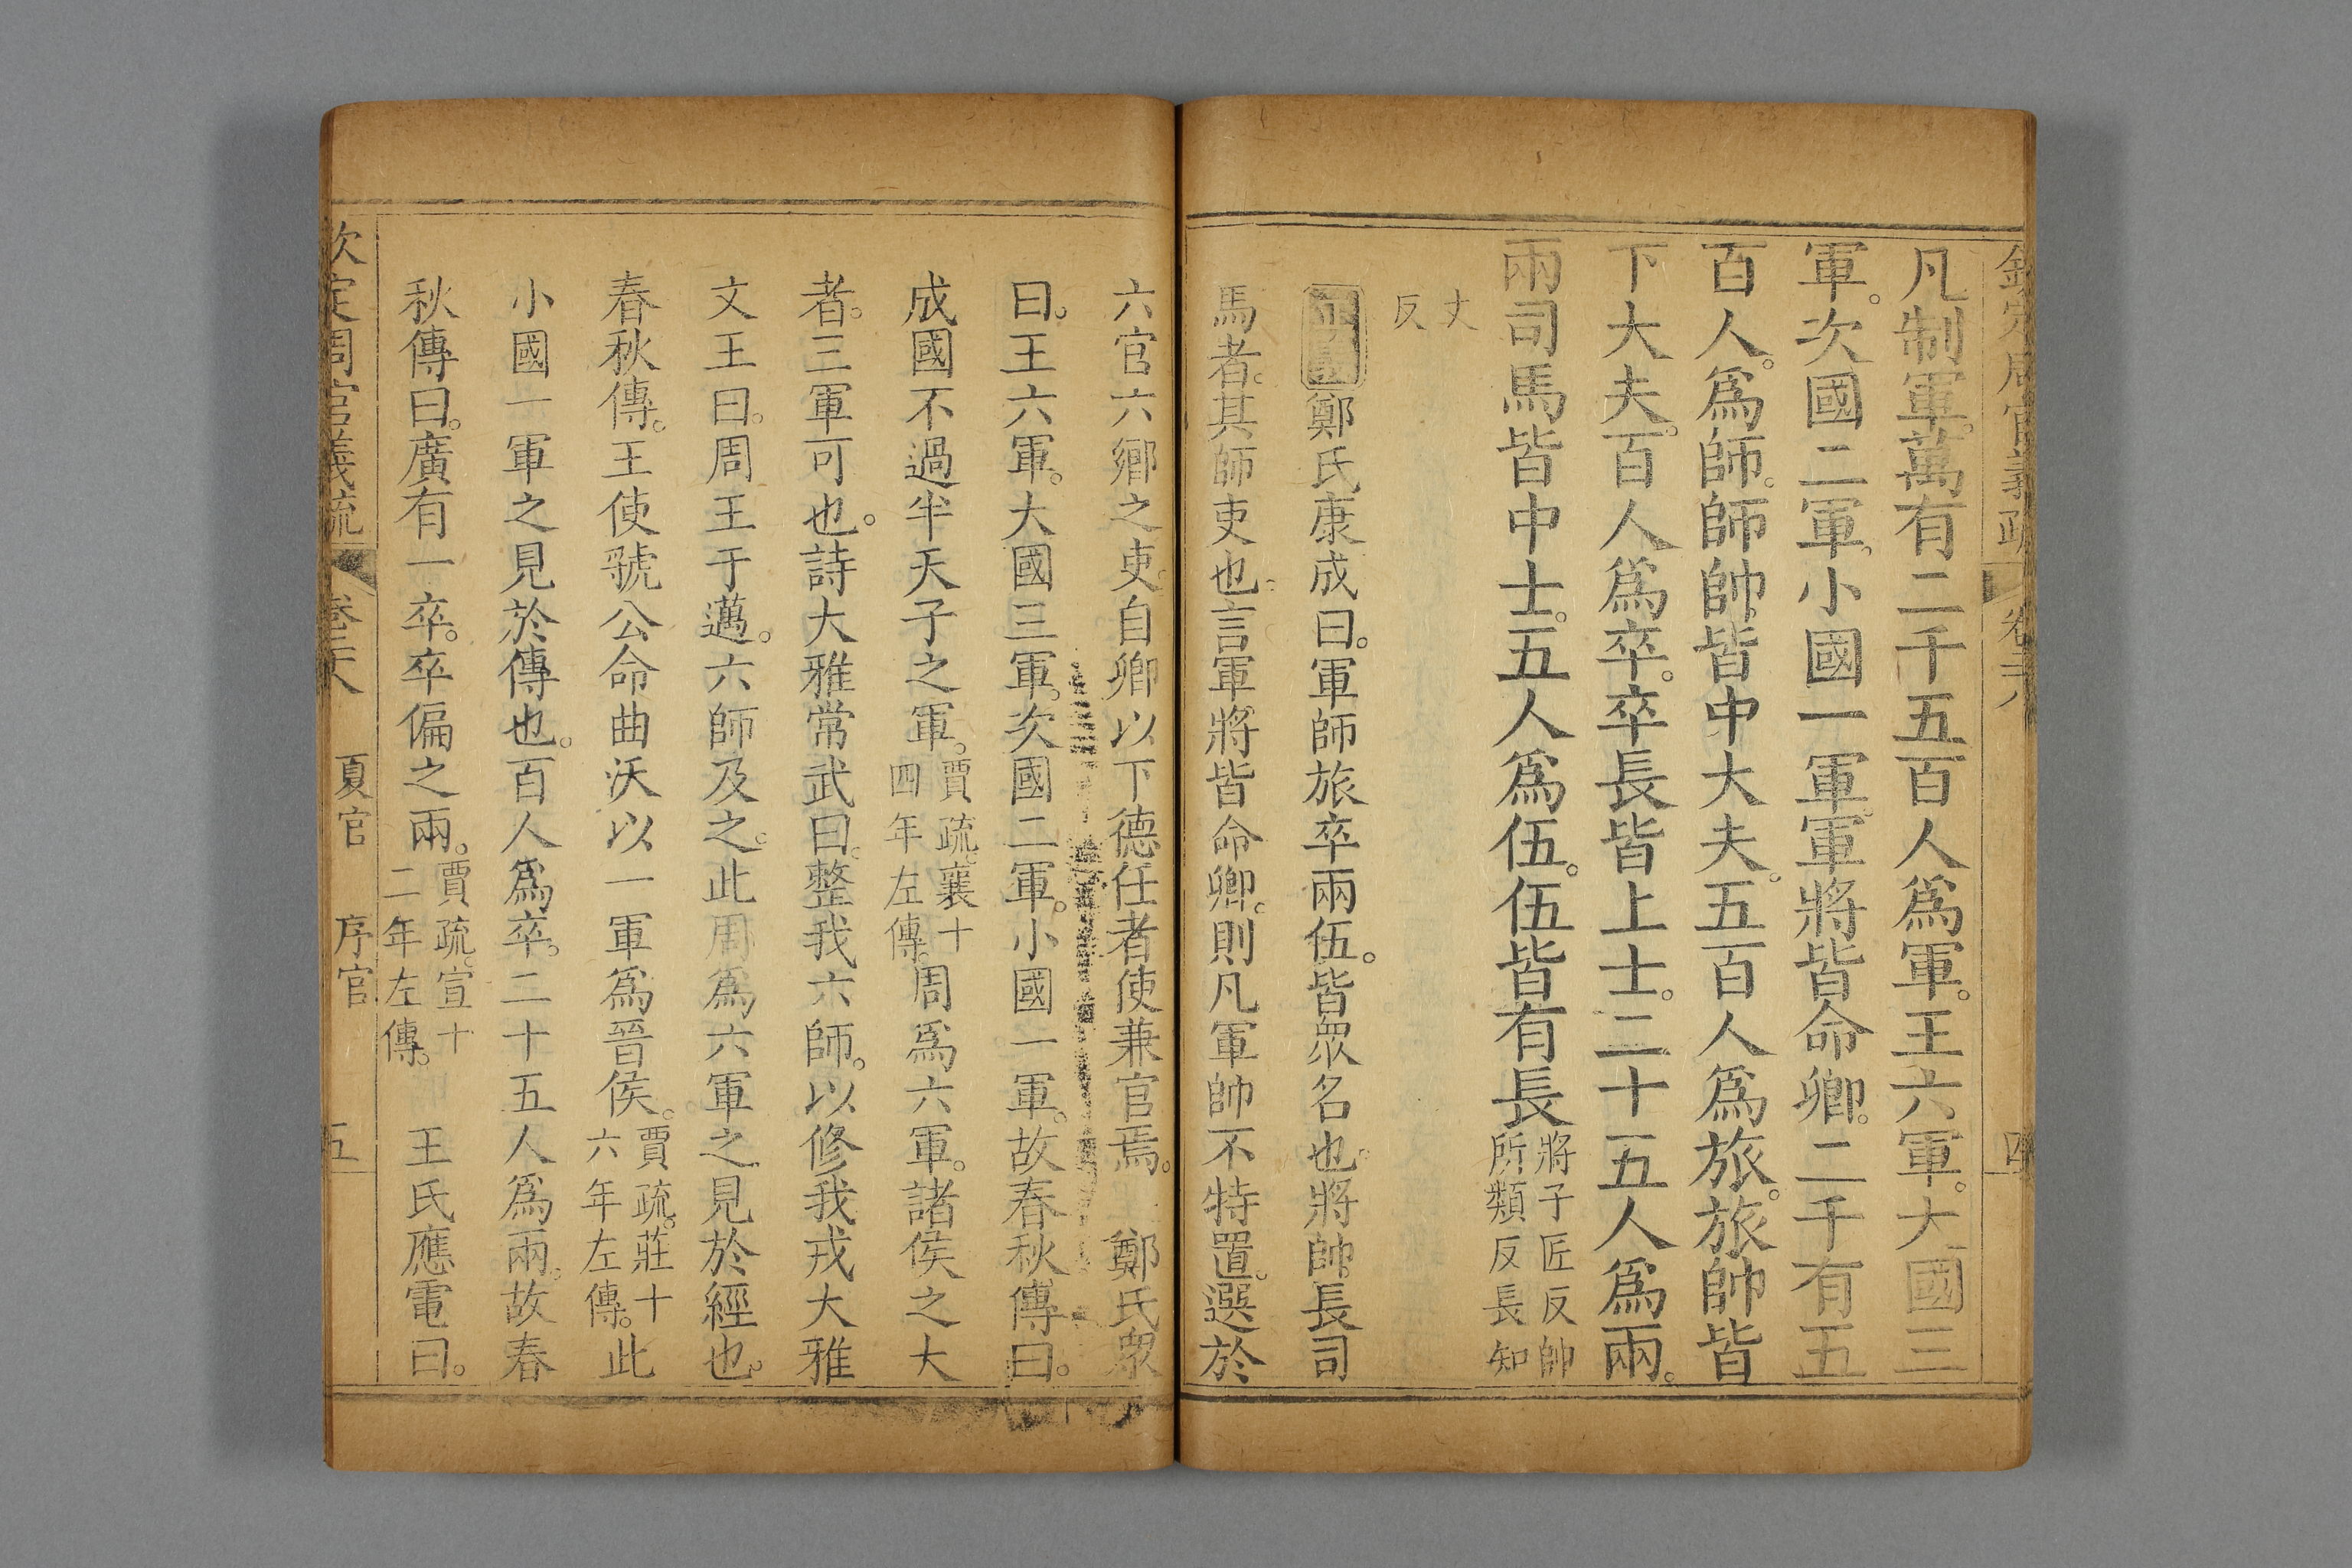 欽定周官義疏 卷二十八 四
凡制軍。萬有二千五百人爲軍。王六軍。大國三
軍。次國二軍。小國一軍。軍將皆命卿。二千有五
百人。爲師。師帥皆中大夫。五百人爲旅。旅帥皆
下大夫。百人爲卒。卒長皆上士。二十五人爲兩。
兩司馬皆中士。五人爲伍。伍皆有長將子匠反帥
所類反長知
丈
反
鄭氏康成曰。軍師旅卒兩伍。皆衆名也。將帥長司
馬者。其師吏也。言軍將皆命卿。則凡軍帥不特置。選於
六官六鄉之吏。自卿以下德任者使兼官焉。 鄭氏衆
曰。王六軍。大國三軍。次國二軍。小國一軍。故春秋傳曰。
成國不過半天子之軍。賈疏。襄十
四年左傳。周爲六軍。諸侯之大
者。三軍可也。詩大雅常武曰。整我六師。以修我戎大雅
文王曰。周王于邁。六師及之。此周爲六軍之見於經也。
春秋傳。王使虢公命曲沃以一軍爲晉侯。賈疏。莊十
六年左傳。此
小國一軍之見於傳也。百人爲卒。二十五人爲兩。故春
秋傳曰。廣有一卒。卒偏之兩。賈疏。宣十
二年左傳。 王氏應電曰。
欽定周官義疏 卷二十八 夏官 序官 五